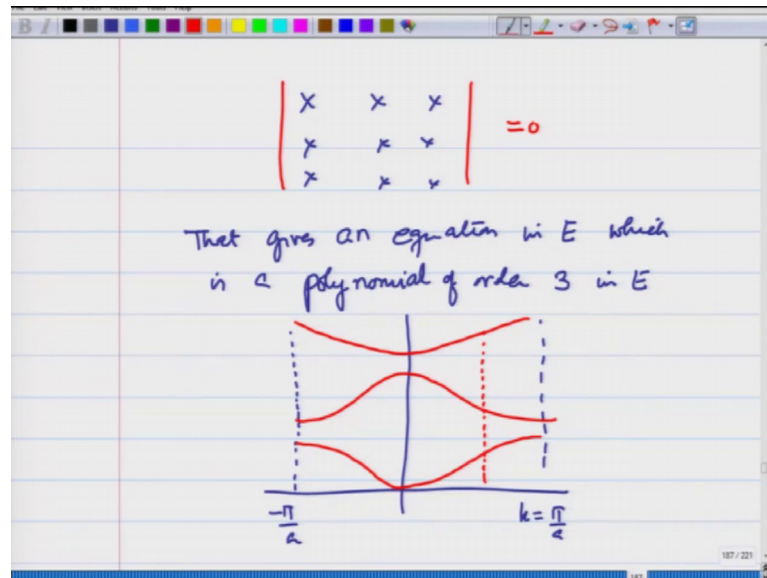 x x x
x x x = 0
x x x
That gives an equation in E which
is a polynomial of order 3 in E
-π/a k = π/a
187 / 221
187